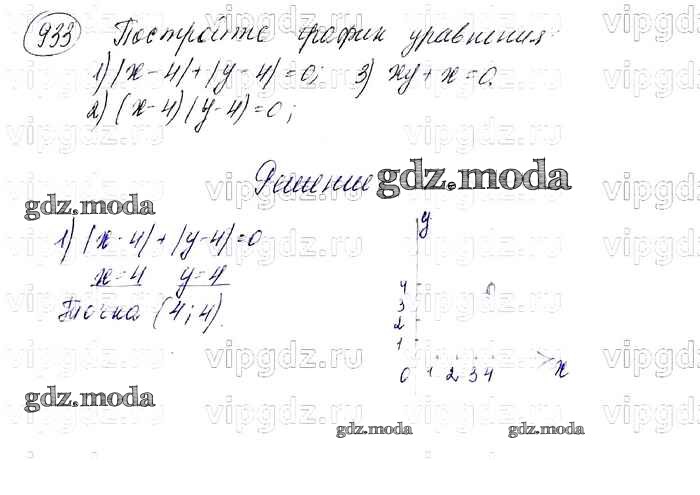 933 Постройте график уравнения:
1) |x-4|+|y-4|=0; 3) xy+x=0.
2) (x-4)(y-4)=0;
Решение
gdz.moda
gdz.moda
1) |x-4|+|y-4|=0
x=4 y=4
Точка (4;4)
y
4
3
2
1
0 1 2 3 4 x
gdz.moda
gdz.moda
gdz.moda
vipgdz.ru vipgdz.ru vipgdz.ru vipgdz.ru